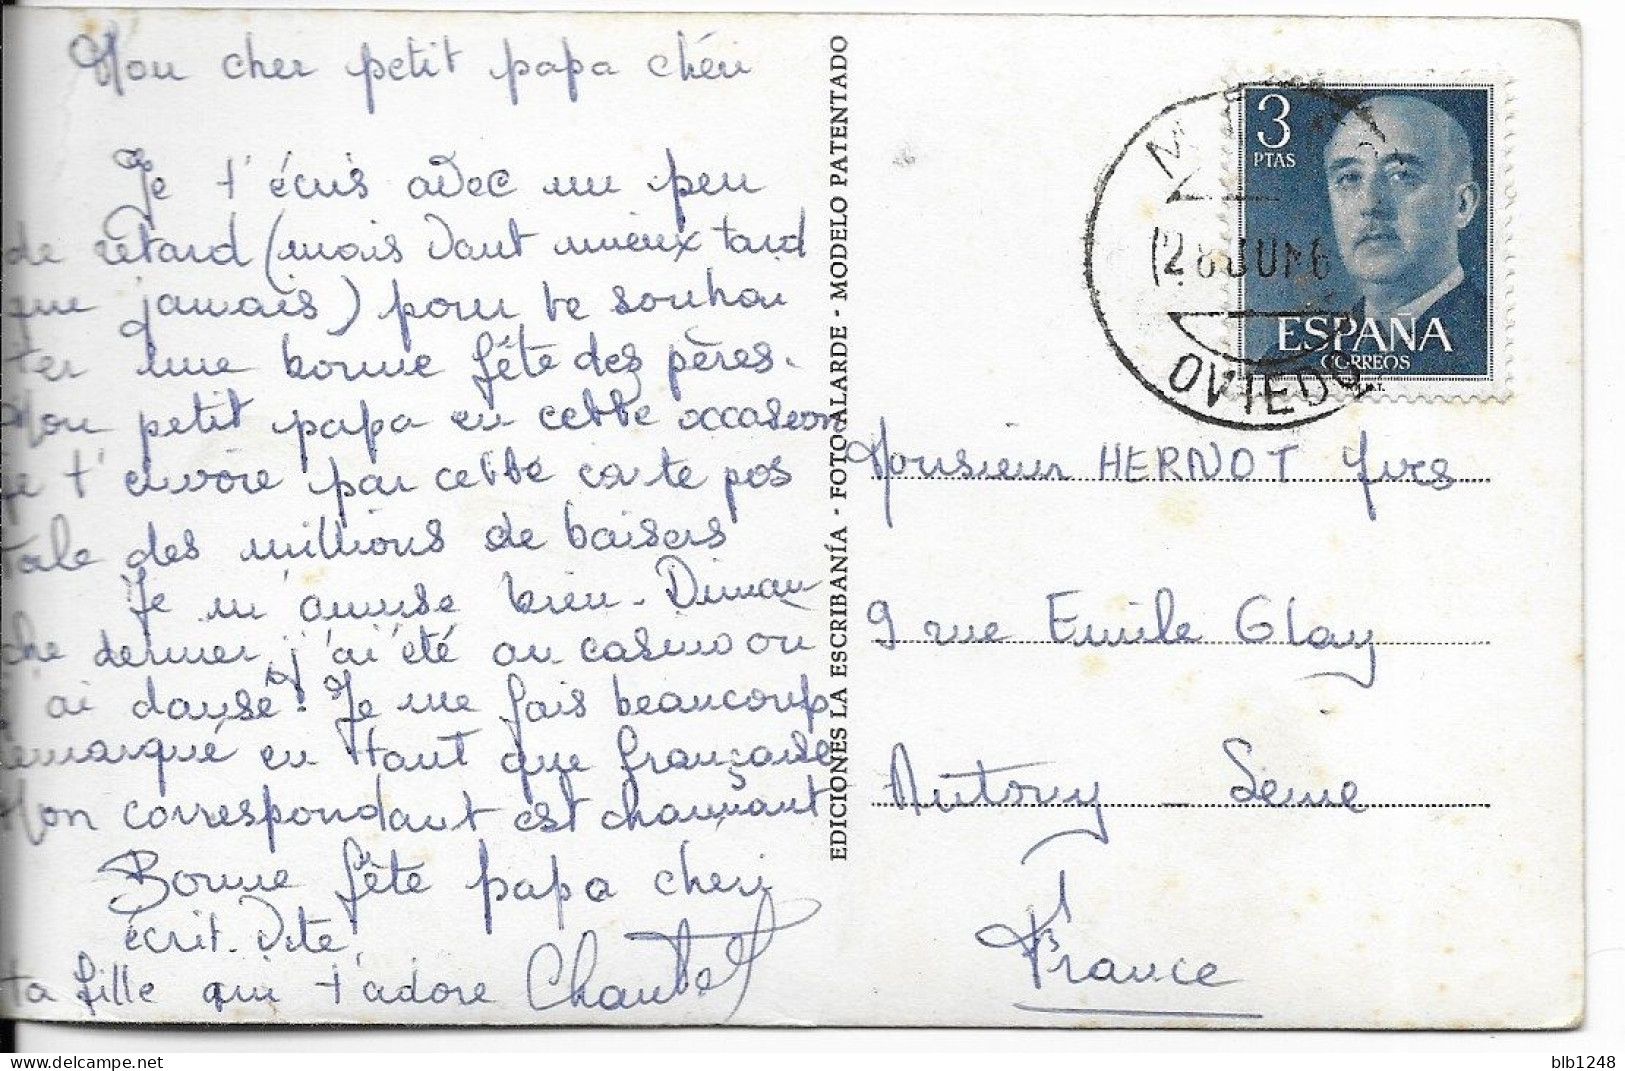 Mon cher petit papa chéri
Je t'écris avec un peu
de retard (mais vaut mieux tard
que jamais) pour te souhai
ter une bonne fête des pères.
Mon petit papa en cette occasion
je t'envoie par cette carte pos
tale des millions de baisers
Je m'amuse bien. Diman
che dernier, j'ai été au casino ou
j'ai dansé! Je me fais beaucoup
remarqué en tant que française
Mon correspondant est charmant
Bonne fête papa cheri
écrit vite
ta fille qui t'adore Chantal
EDICIONES LA ESCRIBANÍA - FOTO ALARDE - MODELO PATENTADO
3
PTAS
ESPAÑA
CORREOS
28 JUN 6
OVIEDO
Monsieur HERNOT Yves
9 rue Emile Glay
Antony - Seine
France
blb1248